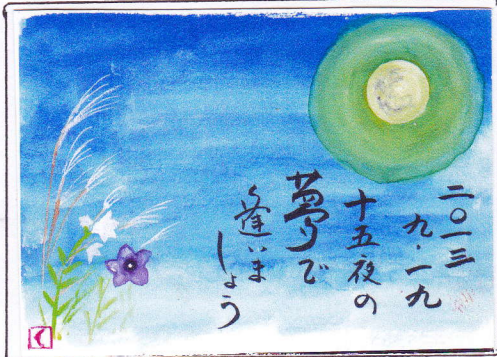 二〇一三
九.一九
十五夜の
夢で
逢いま
しょう